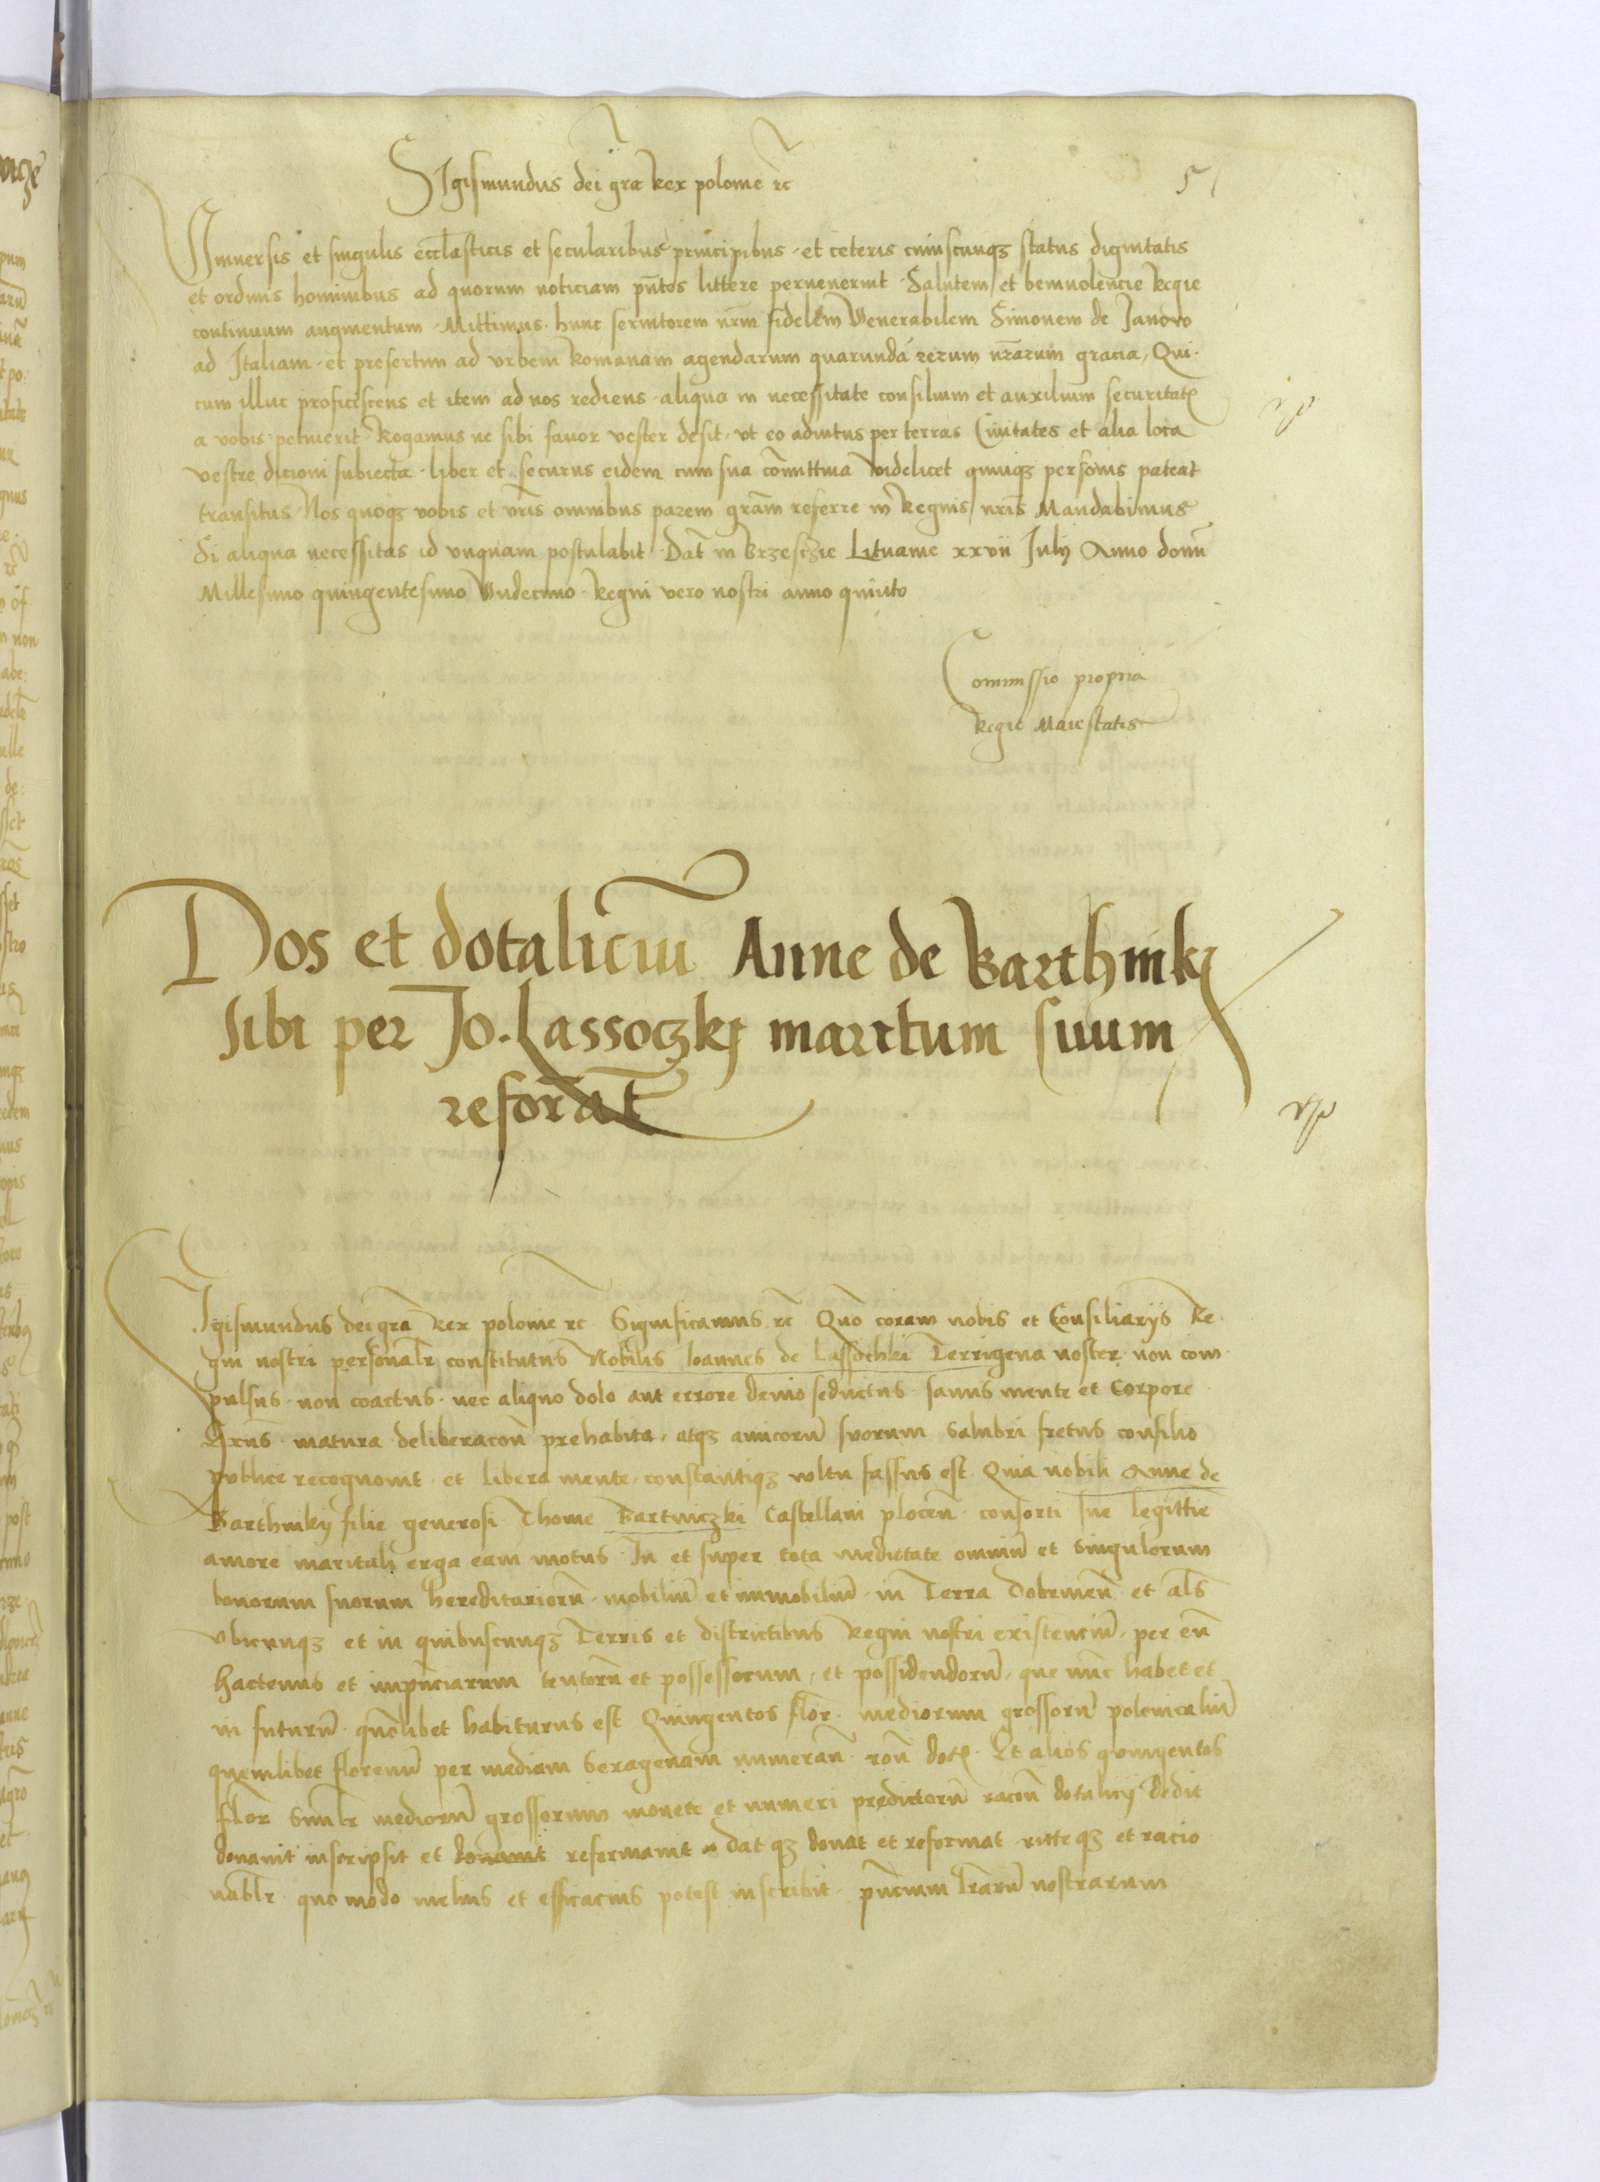 Sigismundus dei gra Rex polonie rc
5
Uniuersis et singulis eccl͠asticis et secularibus principibus · et ceteris cuiuscunqz status dignitatis
et ordinis hominibus ad quorum noticiam pn̄tes littere peruenerint · Salutem et beniuolencie Regie
continuum augmentum · Mittimus · hunc seruitorem nr̄m fidelem Venerabilem Simonem de Janowo
ad Italiam · et presertim ad vrbem Romanam agendarum quarundā rerum nr̄arum gracia, Qui ·
cum illuc proficiscens et item ad nos rediens · aliqua in necessitate consilium et auxilium securitatꝭ
a vobis petiuerit Rogamus ne sibi fauor vester desit · vt eo adiutus per terras Ciuitates et alia loca
vestre dicioni subiecta · liber et securus eidem cum sua cōmittiua videlicet quinqz personis pateat
transitus Nos quoqz vobis et vr̄is omnibus parem grām referre in Regnis nr̄is Mandabimus
Si aliqua necessitas id vnquam postulabit · Dat̄ in Brzesczie Lituanie xxvii Julij Anno domī
Millesimo quingentesimo Vndecimo · Regni vero nostri anno quinto
Commissio propria
Regie Maiestatis
Dos et dotaliciū Anne de Barthnikj
sibi per Jo. Lassoczkj maritum suum
reforāt
Sigismundus dei grā Rex polonie rc Significamus rc Quō coram nobis et Consiliarijs Re ·
gni nostri personalr̄ constitutus Nobilis Ioannes de Lassochki Terrigena noster · non com ·
pulsus · non coactus · nec aliquo dolo aut errore deuio seductus · sanus mente et Corpore
Exn̄s · matura deliberacon̄ prehabita, atqz amicorū suorum salubri fretus consilio
publice recognouit · et libera mente, constantiqz vultu fassus est · Quia nobili Anne de
Barthniky filie generosi Thome Bartniczki Castellani plocen̄ · consorti sue legittie
amore maritali erga eam motus · In et super tota medietate omniū et Singulorum
bonorum suorum hereditariorū · mobiliū et immobiliū · in Terra Dobrinen̄ et al̄s
vbicunqz et in quibuscunqz Terris et districtibus Regni nostri existenciū, per eū
hactenus et impn̄ciarum tentorū et possessorum, et possidendorū, que nūc habet et
in futurū · quōlibet habiturus est Quingentos flor̄ · mediorum grossorū polonicaliū
quemlibet florenū per mediam Sexagenam numeran̄ · ron̄ dotꝭ · Et alios quingentos
flor̄ Similr̄ mediorū grossorum monete et numeri predictorū racōn dotalicij dedit
donauit inscripsit et donauit reformauit dat qz donat et reformat · ritte qz et racio
nablr̄ · quo modo melius et efficacius potest inscribit · pn̄cium lr̄arū nostrarum